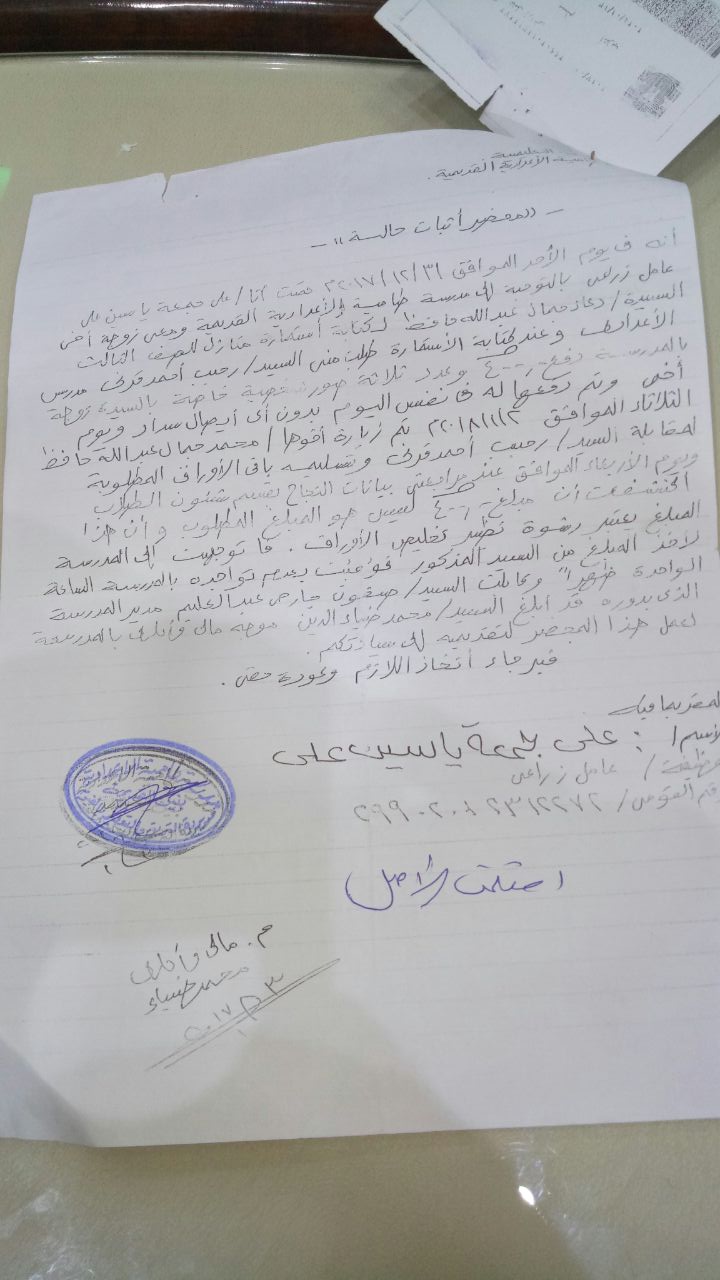 الأعدادية القديمة.
-"محضر أثبات حالة"-
أنه فى يوم الأحد الموافق ٢٠١٧/١٢/٣١ قمت أنا/ على جمعة ياسين على
عامل زراعى بالتوجة إلى مدرسة طامية الإعدادية القديمة ومعى زوجة أخى
السيدة/ دعاء جمال عبدالله حافظ لكتابة أستمارة منازل للصف الثالث
الأعدادى وعند كتابة الأستمارة طلب منى السيد/ رجب أحمد قرنى مدرس
بالمدرسة دفع ٤٠٠ وعدد ثلاثة صور شخصية خاصة بالسيدة زوجة
أخى وتم دفعها له فى نفس اليوم بدون أى أيصال سداد ويوم
الثلاثاء الموافق ٢٠١٨/١/٢ تم زيارة أخوها/ محمد جمال عبدالله حافظ
لمقابلة السيد/ رجب أحمد قرنى وتسليمه باقى الأوراق المطلوبة
ويوم الأربعاء الموافق عند مراجعتى بيانات النجاح بقسم شئون الطلاب
أكتشفت أن مبلغ ٤٠٠ ليس هو المبلغ المطلوب وأن هذا
المبلغ يعتبر رشوة نظير تخليص الأوراق. فا توجهت إلى المدرسة
لأخذ المبلغ من السيد المذكور فوجئت بعدم تواجده بالمدرسة الساعة
الواحدة ظهراً وقابلت السيد/ عبدالعليم مدير المدرسة
الذى بدوره قد أبلغ السيد/ محمد ضياء الدين موجه مالى وأدارى بالمدرسة
لعمل هذا المحضر لتقديمه إلى سيادتكم.
فبرجاء أتخاذ اللازم وعودة حقى.
المقر بما فيه
الأسم/: على جمعة ياسين على
وظيفة/ عامل زراعى
رقم القومى/ ٢٩٩٠٢٠١٢٣١٢٢٧٢
أستلمت الأصل
م. مالى وأدارى
محمد ضياء